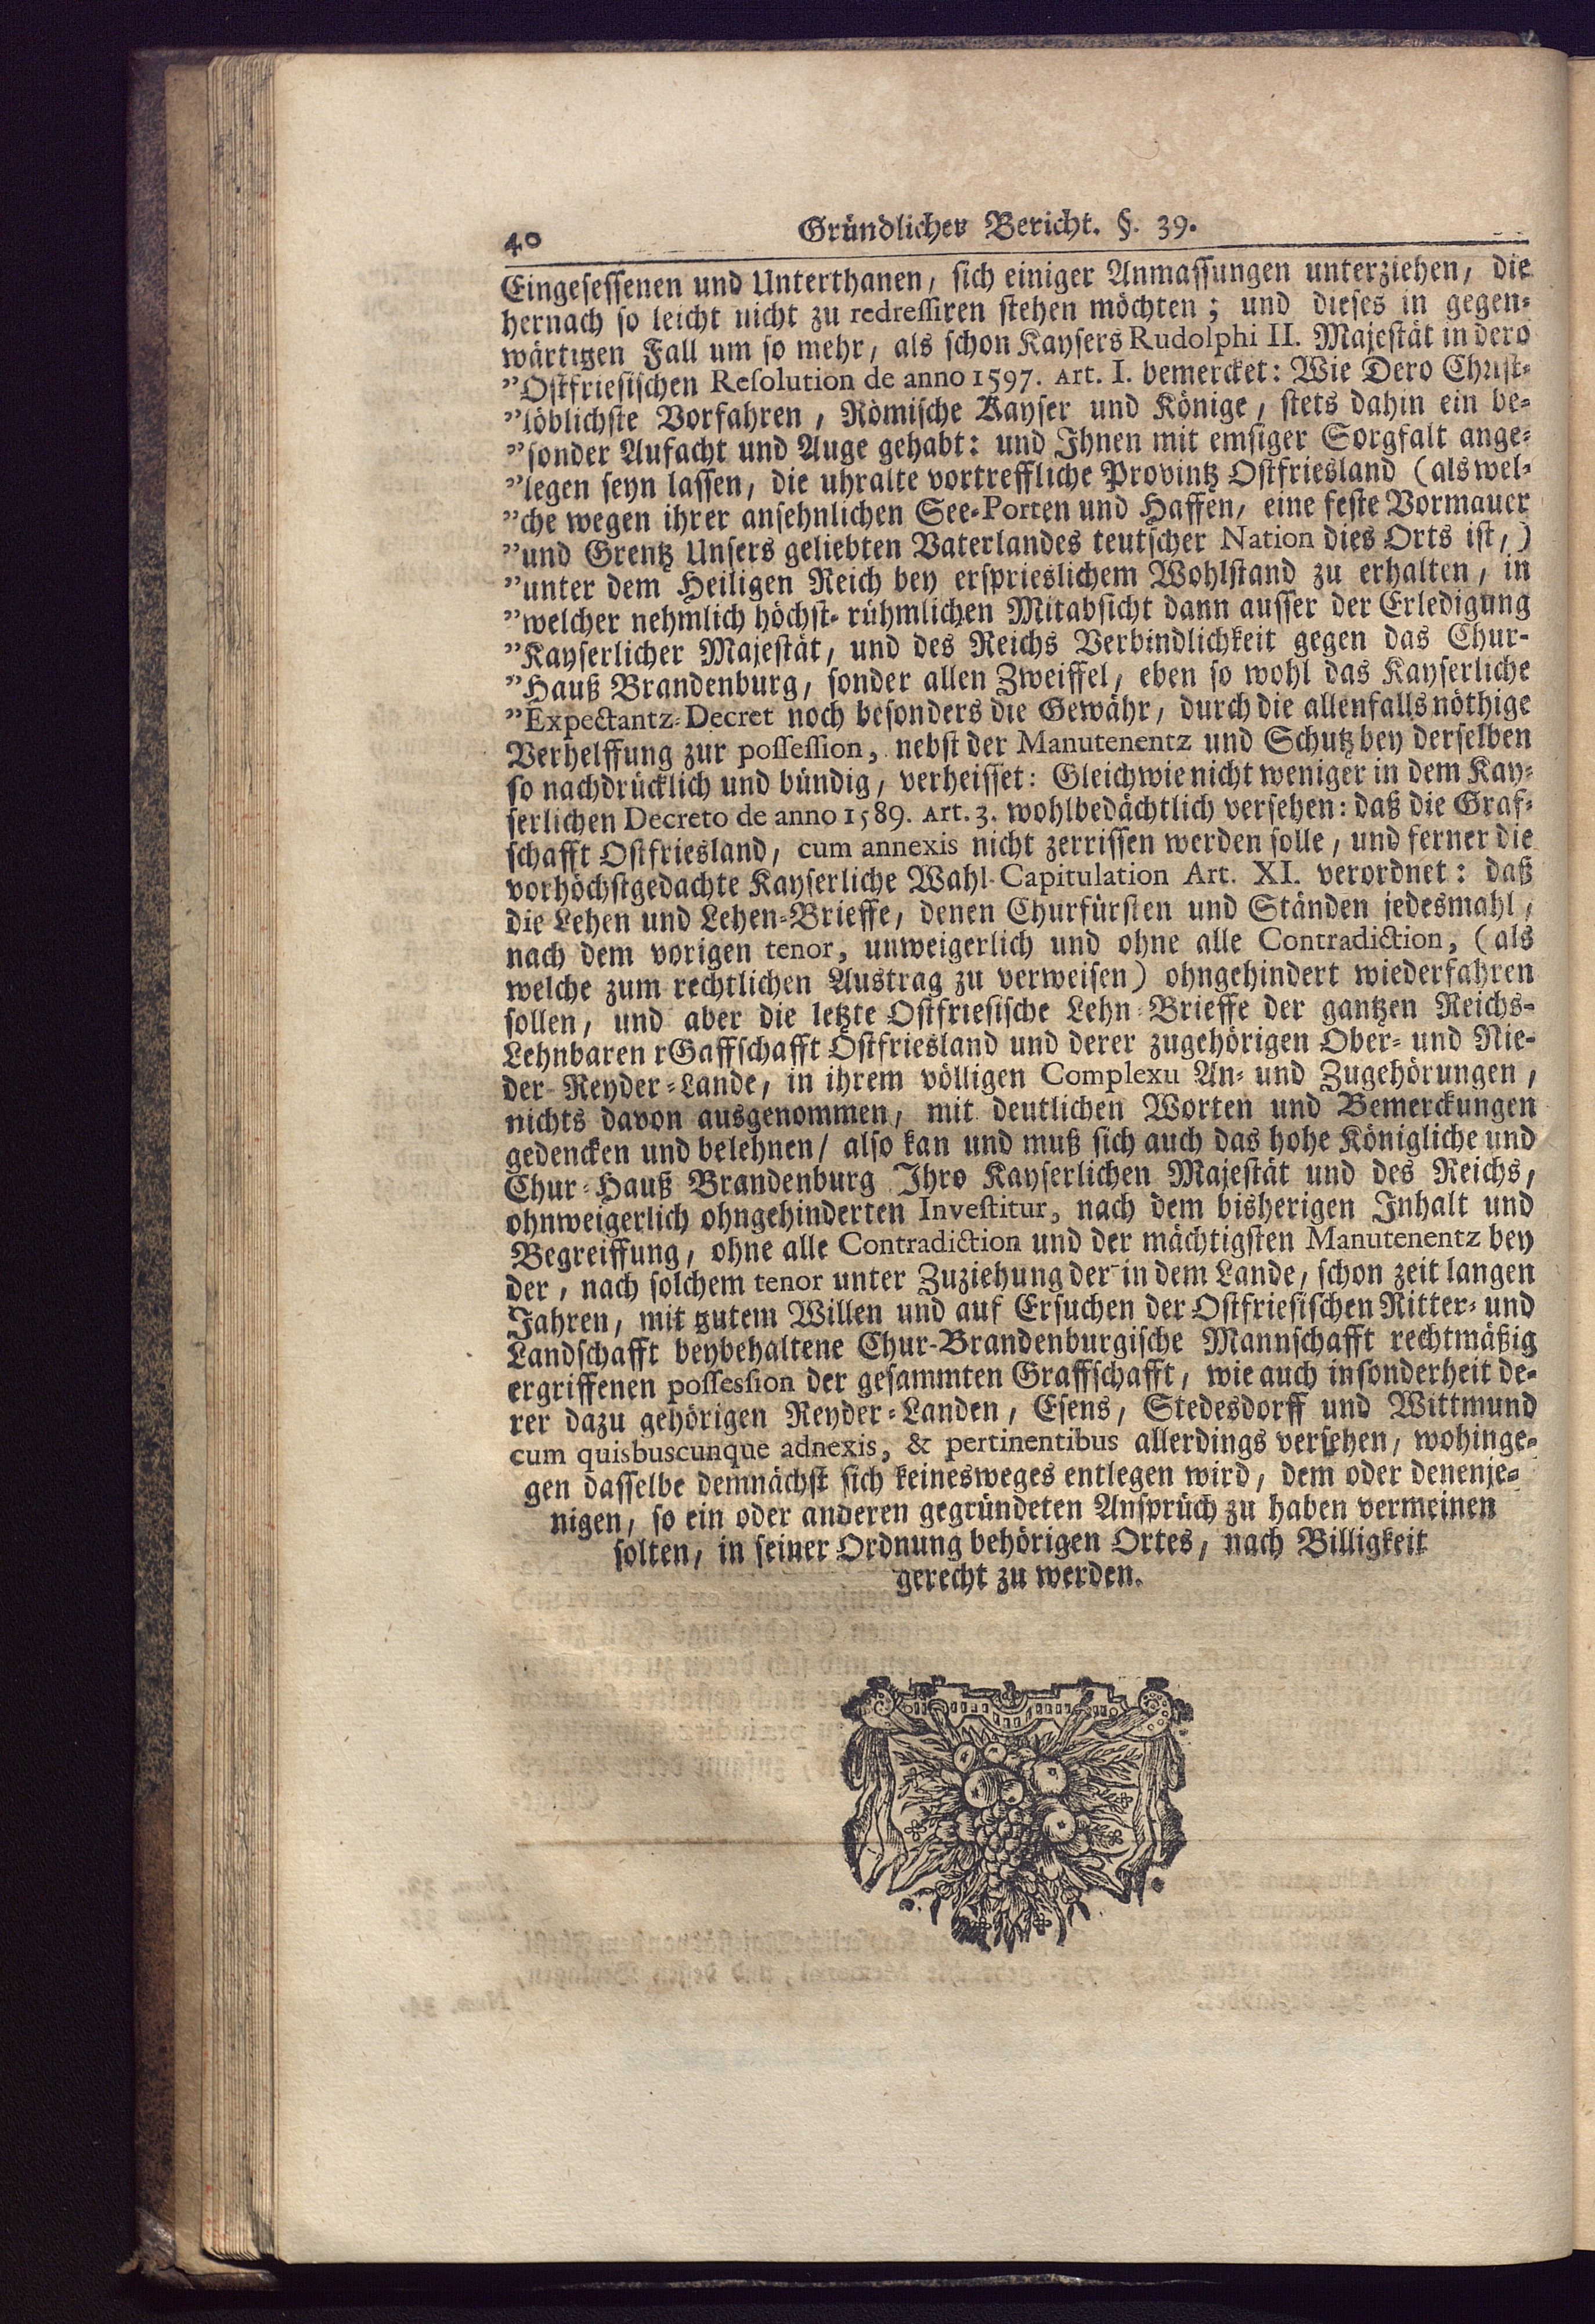 40 Gründlicher Bericht. §. 39.
Eingesessenen und Unterthanen, sich einiger Anmassungen unterziehen, die
hernach so leicht nicht zu redressiren stehen möchten; und dieses in gegen-
wärtigen Fall um so mehr, als schon Kaysers Rudolphi II. Majestät in dero
"Ostfriesischen Resolution de anno 1597. Art. I. bemercket: Wie Dero Christ-
"löblichste Vorfahren, Römische Kayser und Könige, stets dahin ein be-
"sonder Aufacht und Auge gehabt: und Ihnen mit emsiger Sorgfalt ange-
"legen seyn lassen, die uhralte vortreffliche Provintz Ostfriesland (als wel-
"che wegen ihrer ansehnlichen See-Porten und Haffen, eine feste Vormauer
"und Grentz Unsers geliebten Vaterlandes teutscher Nation dies Orts ist,)
"unter dem Heiligen Reich bey ersprieslichem Wohlstand zu erhalten, in
"welcher nehmlich höchst-rühmlichen Mitabsicht dann ausser der Erledigung
"Kayserlicher Majestät, und des Reichs Verbindlichkeit gegen das Chur-
"Hauß Brandenburg, sonder allen Zweiffel, eben so wohl das Kayserliche
"Expectantz-Decret noch besonders die Gewähr, durch die allenfalls nöthige
Verhelffung zur possession, nebst der Manutenentz und Schutz bey derselben
so nachdrücklich und bündig, verheisset: Gleichwie nicht weniger in dem Kay-
serlichen Decreto de anno 1589. Art. 3. wohlbedächtlich versehen: daß die Graf-
schafft Ostfriesland, cum annexis nicht zerrissen werden solle, und ferner die
vorhöchstgedachte Kayserliche Wahl-Capitulation Art. XI. verordnet: daß
die Lehen und Lehen-Brieffe, denen Churfürsten und Ständen jedesmahl,
nach dem vorigen tenor, unweigerlich und ohne alle Contradiction, (als
welche zum rechtlichen Austrag zu verweisen) ohngehindert wiederfahren
sollen, und aber die letzte Ostfriesische Lehn-Brieffe der gantzen Reichs-
Lehnbaren rGaffschafft Ostfriesland und derer zugehörigen Ober- und Nie-
der-Reyder-Lande, in ihrem völligen Complexu An- und Zugehörungen,
nichts davon ausgenommen, mit deutlichen Worten und Bemerckungen
gedencken und belehnen/ also kan und muß sich auch das hohe Königliche und
Chur-Hauß Brandenburg Ihro Kayserlichen Majestät und des Reichs,
ohnweigerlich ohngehinderten Investitur, nach dem bisherigen Inhalt und
Begreiffung, ohne alle Contradiction und der mächtigsten Manutenentz bey
der, nach solchem tenor unter Zuziehung der in dem Lande, schon zeit langen
Jahren, mit gutem Willen und auf Ersuchen der Ostfriesischen Ritter- und
Landschafft beybehaltene Chur-Brandenburgische Mannschafft rechtmäßig
ergriffenen possession der gesammten Graffschafft, wie auch insonderheit de-
rer dazu gehörigen Reyder-Landen, Esens, Stedesdorff und Wittmund
cum quisbuscunque adnexis, & pertinentibus allerdings versehen, wohinge-
gen dasselbe demnächst sich keinesweges entlegen wird, dem oder denenje-
nigen, so ein oder anderen gegründeten Ansprüch zu haben vermeinen
solten, in seiner Ordnung behörigen Ortes, nach Billigkeit
gerecht zu werden.